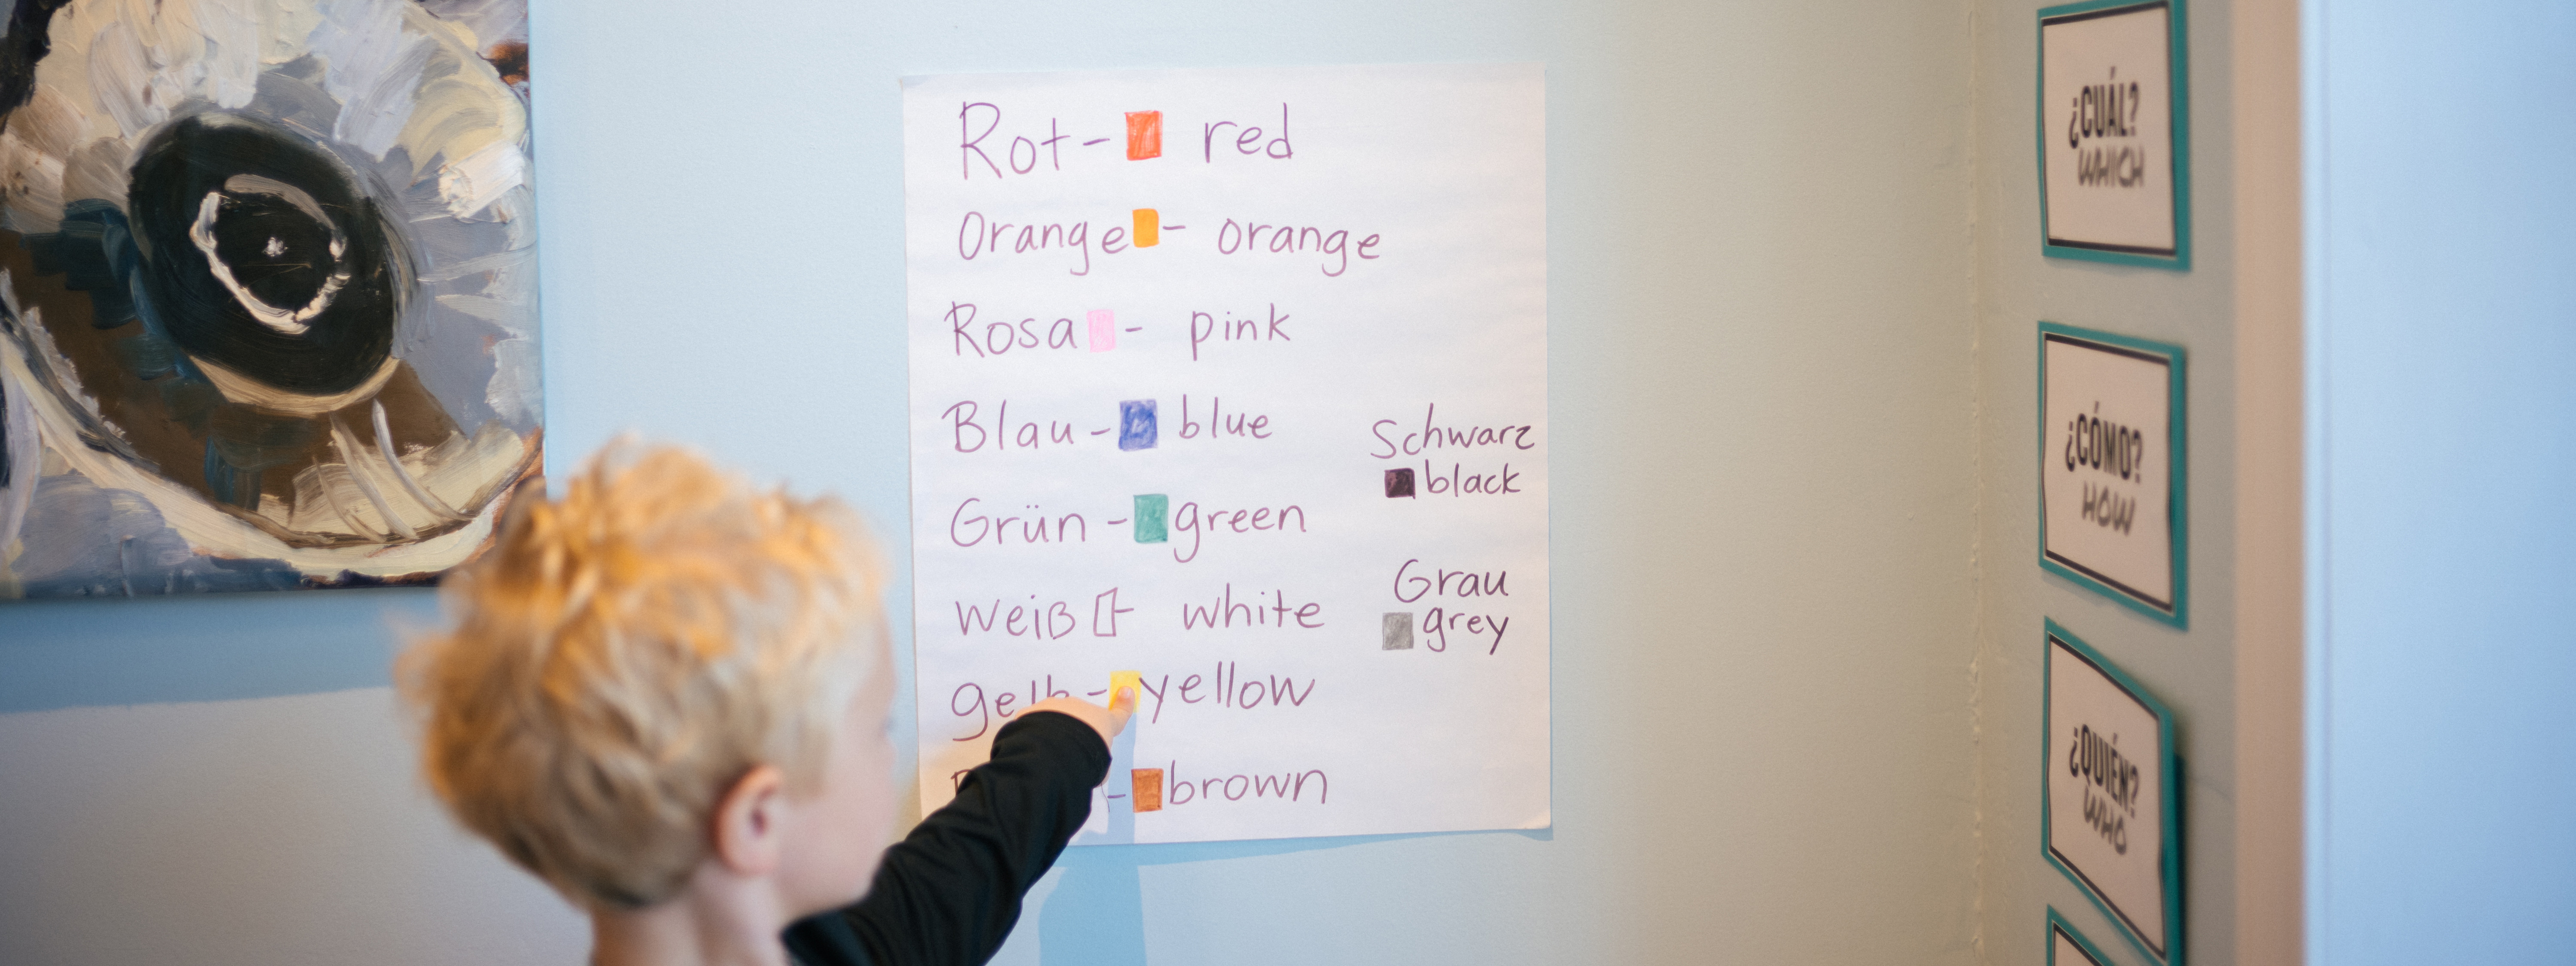 Rot - red
Orange - orange
Rosa - pink
Blau - blue
Grün - green
weiß - white
yellow
- brown
Schwarz
black
Grau
grey
¿CUÁL?
WHICH
¿CÓMO?
HOW
¿QUIÉN?
WHO